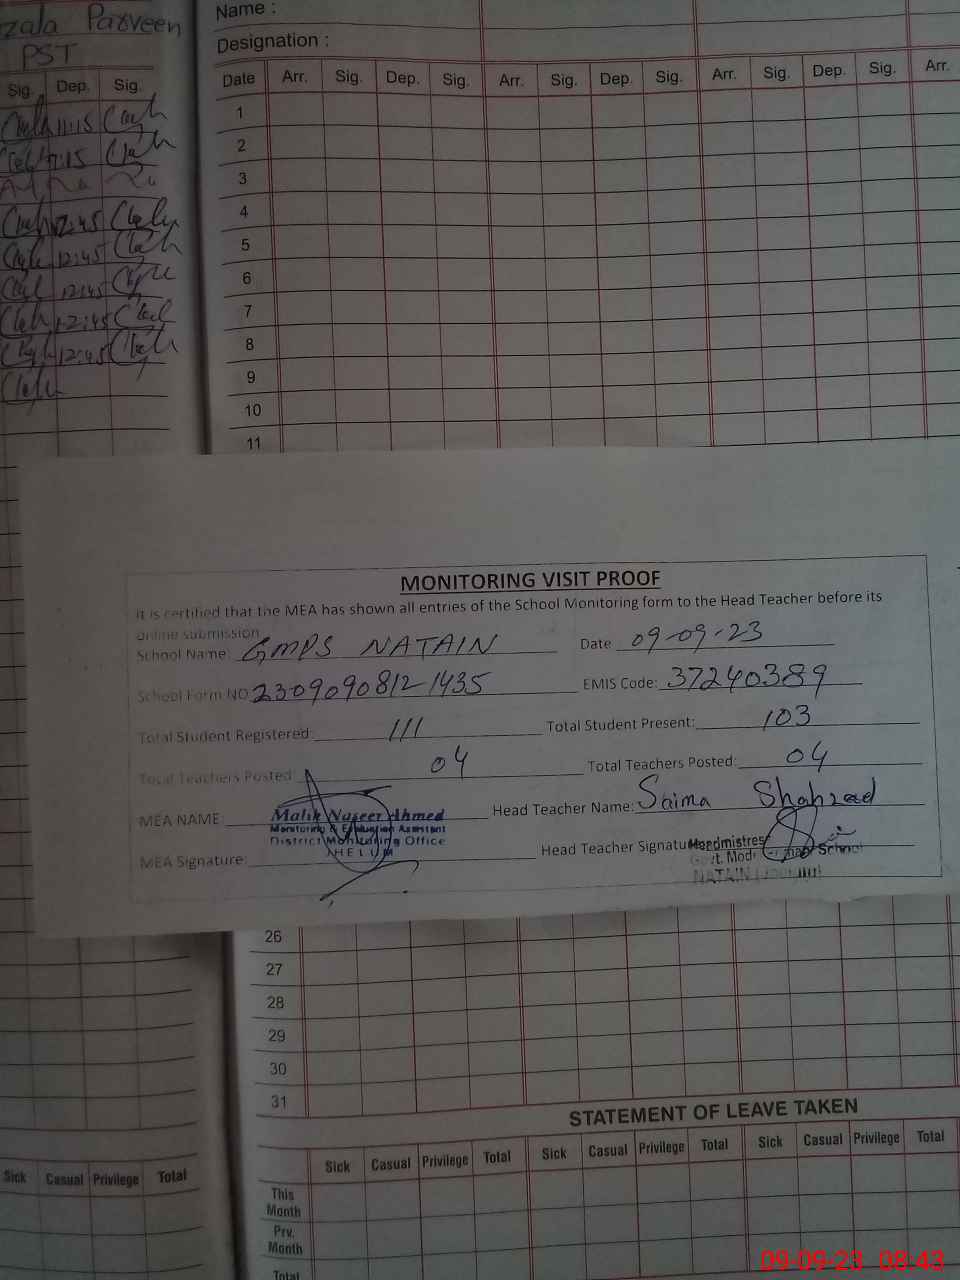 zala Parveen
PST
Sig. Dep. Sig.
11:15
12:45
12:45
12:45
12:45
12:45
Name :
Designation :
Date Arr. Sig. Dep. Sig. Arr. Sig. Dep. Sig. Arr. Sig. Dep. Sig. Arr.
1
2
3
4
5
6
7
8
9
10
11
MONITORING VISIT PROOF
It is certified that the MEA has shown all entries of the School Monitoring form to the Head Teacher before its
online submission
School Name: GMPS NATAIN Date 09-09-23
School Form NO 23090908121435 EMIS Code: 37240389
Total Student Registered: 111 Total Student Present: 103
Total Teachers Posted: 04 Total Teachers Posted: 04
MEA NAME Malik Naseer Ahmed Head Teacher Name: Saima Shahzad
Monitoring & Evaluation Assistant
District Monitoring Office
JHELUM
MEA Signature: Head Teacher Signature
Headmistress
School
NATAIN
26
27
28
29
30
31
STATEMENT OF LEAVE TAKEN
Sick Casual Privilege Total Sick Casual Privilege Total Sick Casual Privilege Total
This
Month
Prv.
Month
Total
09-09-23 08:43